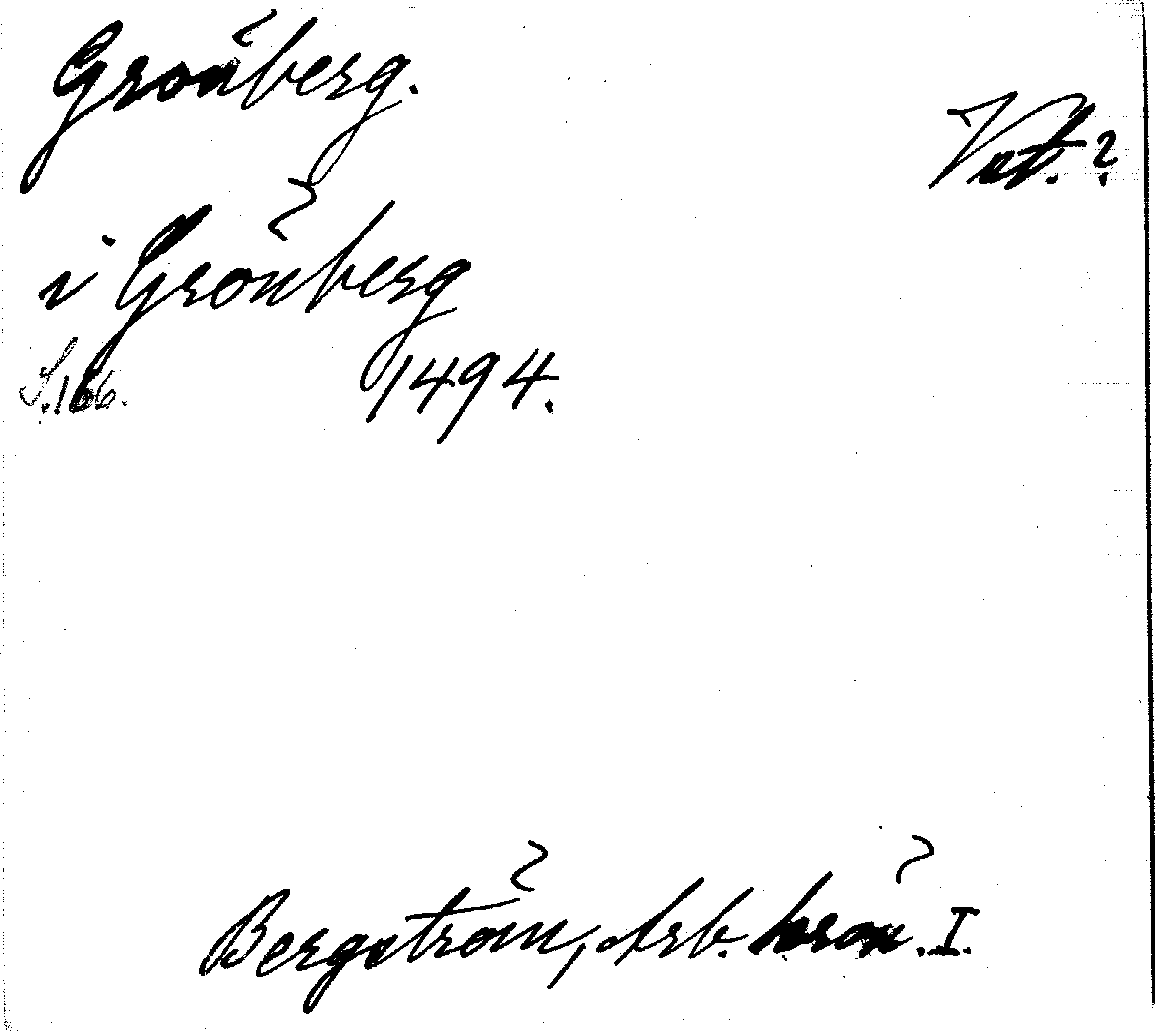 Grönberg.
Vet. ?
i Grönberg
S. 166. 1494.
Bergström, Arb. krön. I.